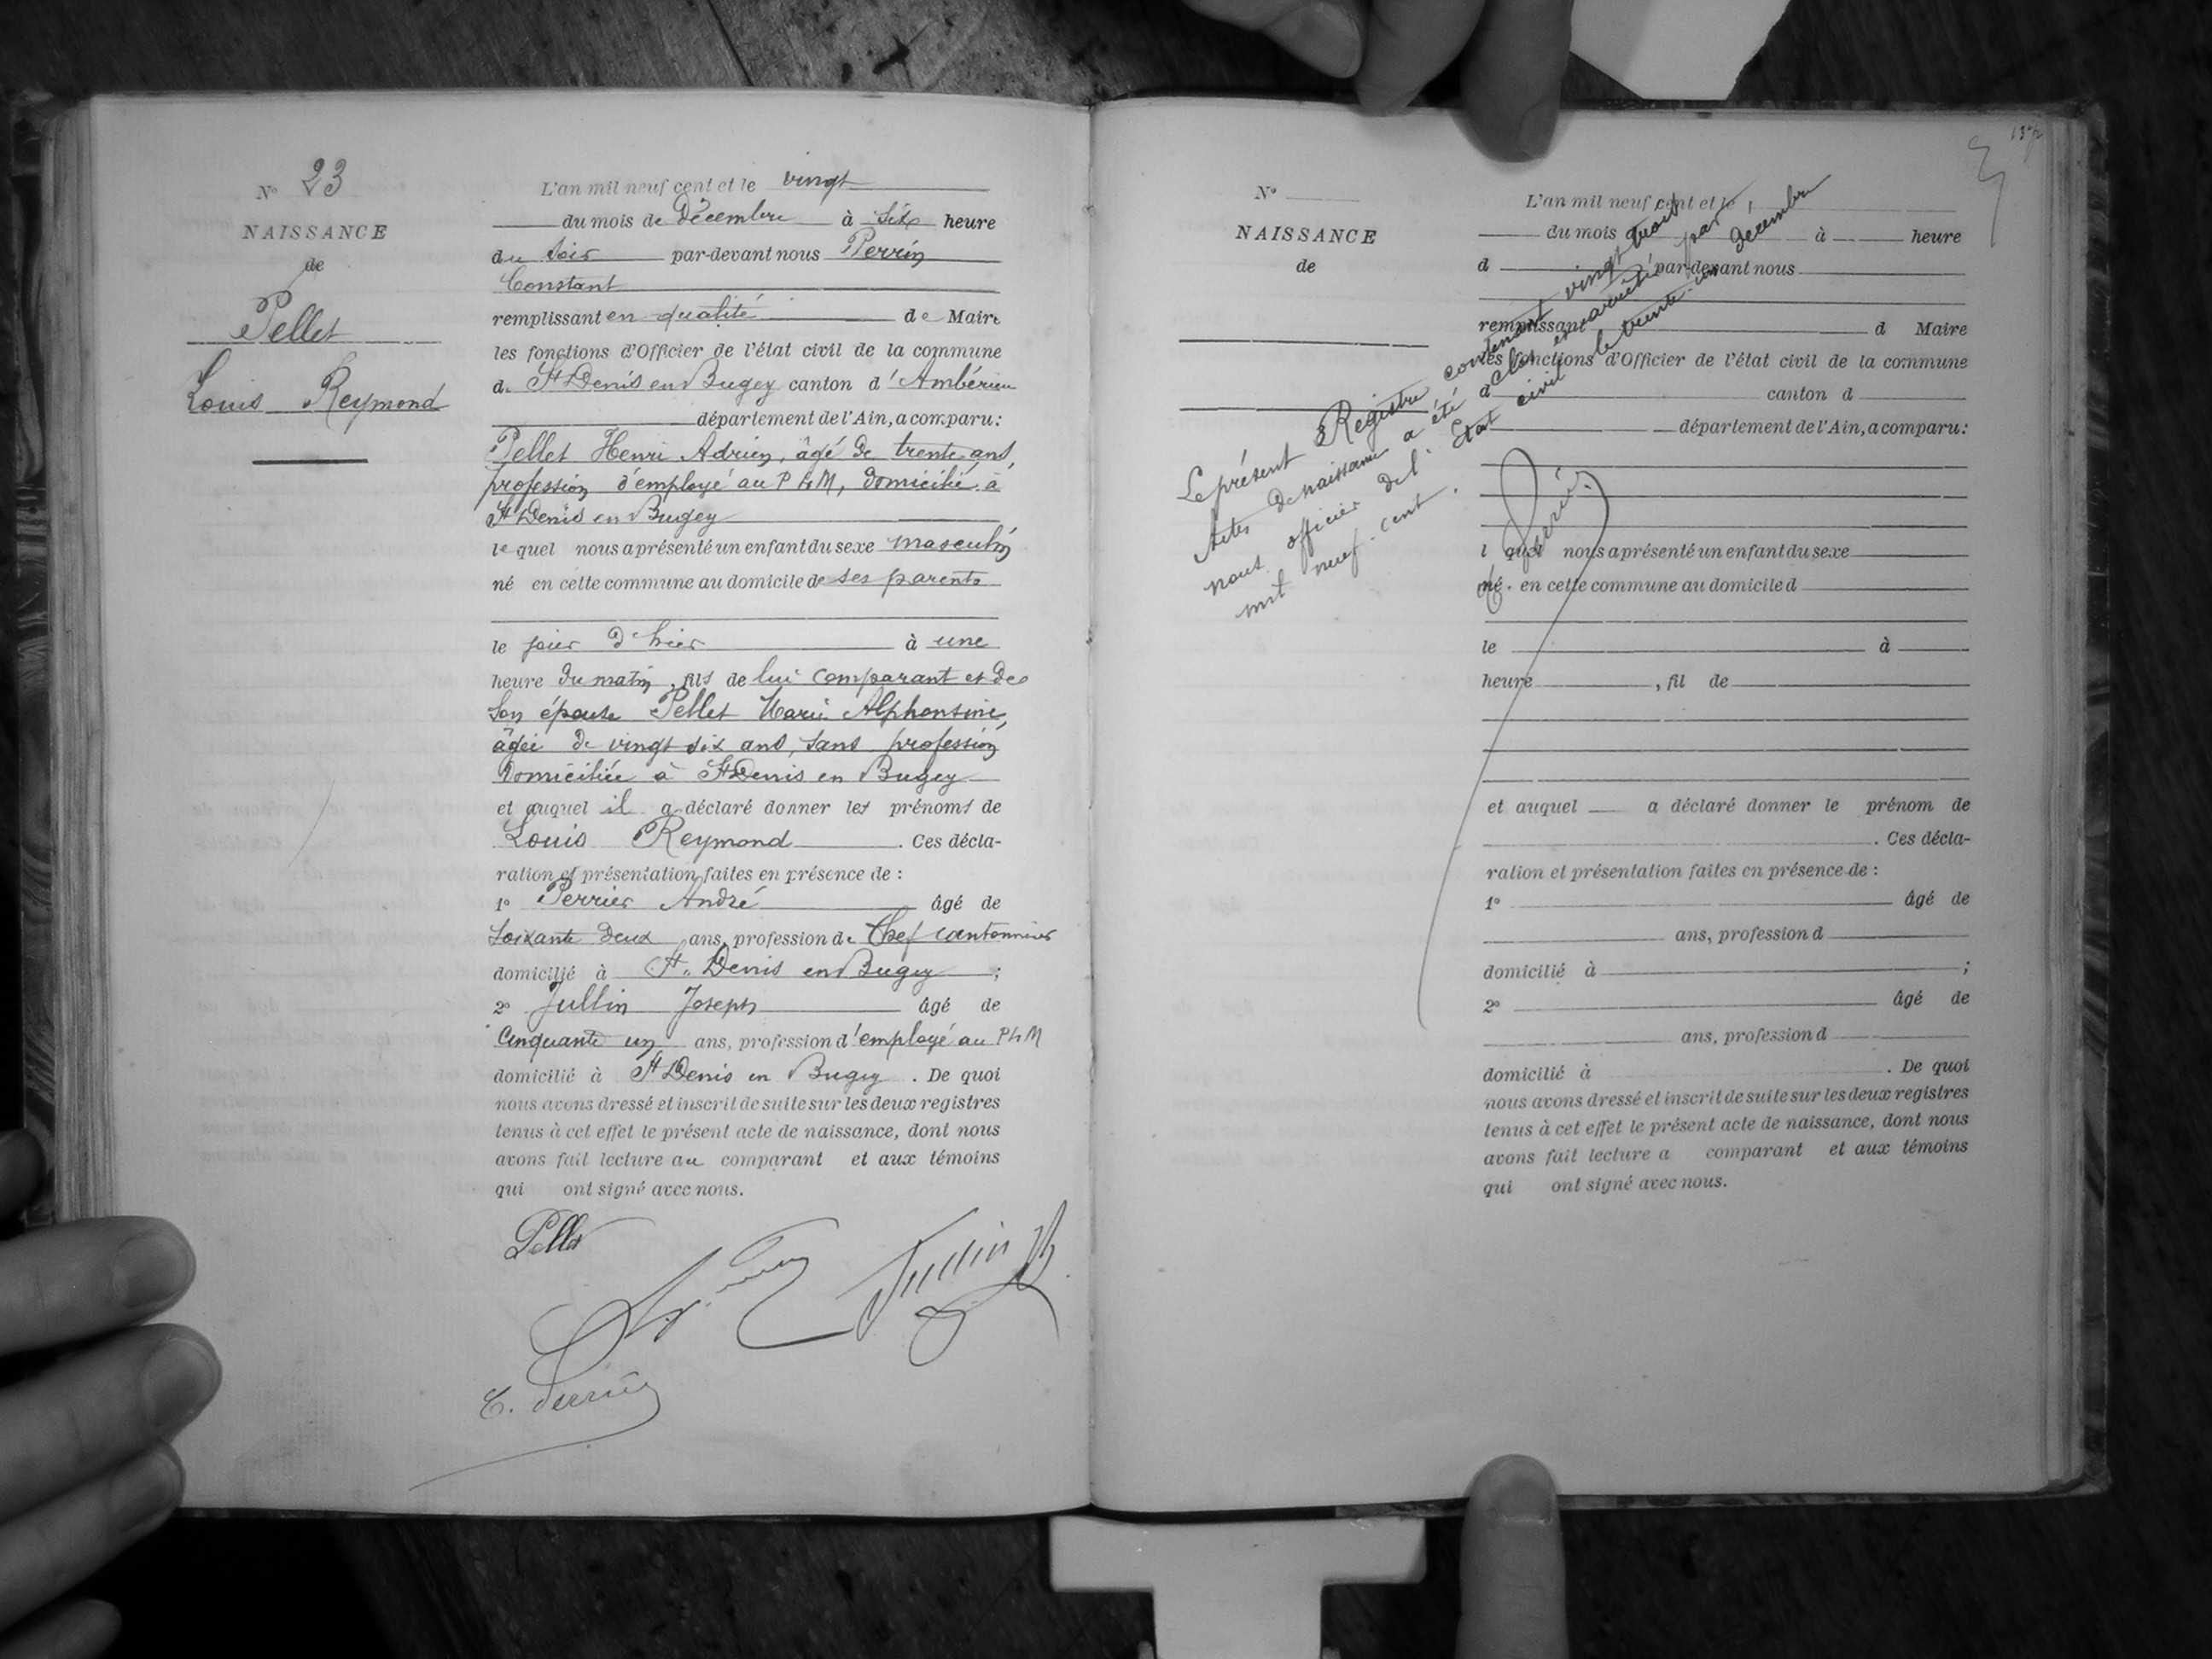 N° 23
NAISSANCE
de
Pellet
Louis Reymond
L'an mil neuf cent et le vingt
du mois de Décembre à six heure
du soir par-devant nous Perrin
Constant
remplissant en qualité de Maire
les fonctions d'Officier de l'état civil de la commune
de St Denis en Bugey canton d'Ambérieu
département de l'Ain, a comparu:
Pellet Henri Adrien, âgé de trente ans,
profession d'employé au P L M, domicilié à
St Denis en Bugey
lequel nous a présenté un enfant du sexe masculin
né en cette commune au domicile de ses parents
le jour d'hier à une
heure du matin, fils de lui comparant et de
son épouse Pellet Marie Alphonsine,
âgée de vingt six ans, sans profession
domiciliée à St Denis en Bugey
et auquel il a déclaré donner les prénoms de
Louis Reymond. Ces décla-
ration et présentation faites en présence de :
1° Perrier André âgé de
soixante deux ans, profession de Chef cantonnier
domicilié à St. Denis en Bugey ;
2° Jullin Joseph âgé de
Cinquante un ans, profession d'employé au PLM
domicilié à St Denis en Bugey. De quoi
nous avons dressé et inscrit de suite sur les deux registres
tenus à cet effet le présent acte de naissance, dont nous
avons fait lecture au comparant et aux témoins
qui ont signé avec nous.
Pellet
Jullin Jh
C. Perrin
N°
NAISSANCE
de
L'an mil neuf cent et le
du mois d à heure
d par-devant nous
remplissant d Maire
les fonctions d'Officier de l'état civil de la commune
d canton d
département de l'Ain, a comparu:
l quel nous a présenté un enfant du sexe
né en cette commune au domicile d
le à
heure , fil de
et auquel a déclaré donner le prénom de
. Ces décla-
ration et présentation faites en présence de :
1° âgé de
ans, profession d
domicilié à ;
2° âgé de
ans, profession d
domicilié à . De quoi
nous avons dressé et inscrit de suite sur les deux registres
tenus à cet effet le présent acte de naissance, dont nous
avons fait lecture a comparant et aux témoins
qui ont signé avec nous.
Le présent Registre contenant vingt trois
Actes de naissance a été clos et arrêté par
nous officier de l'Etat civil le trente un décembre
mil neuf-cent.
C. Perrin